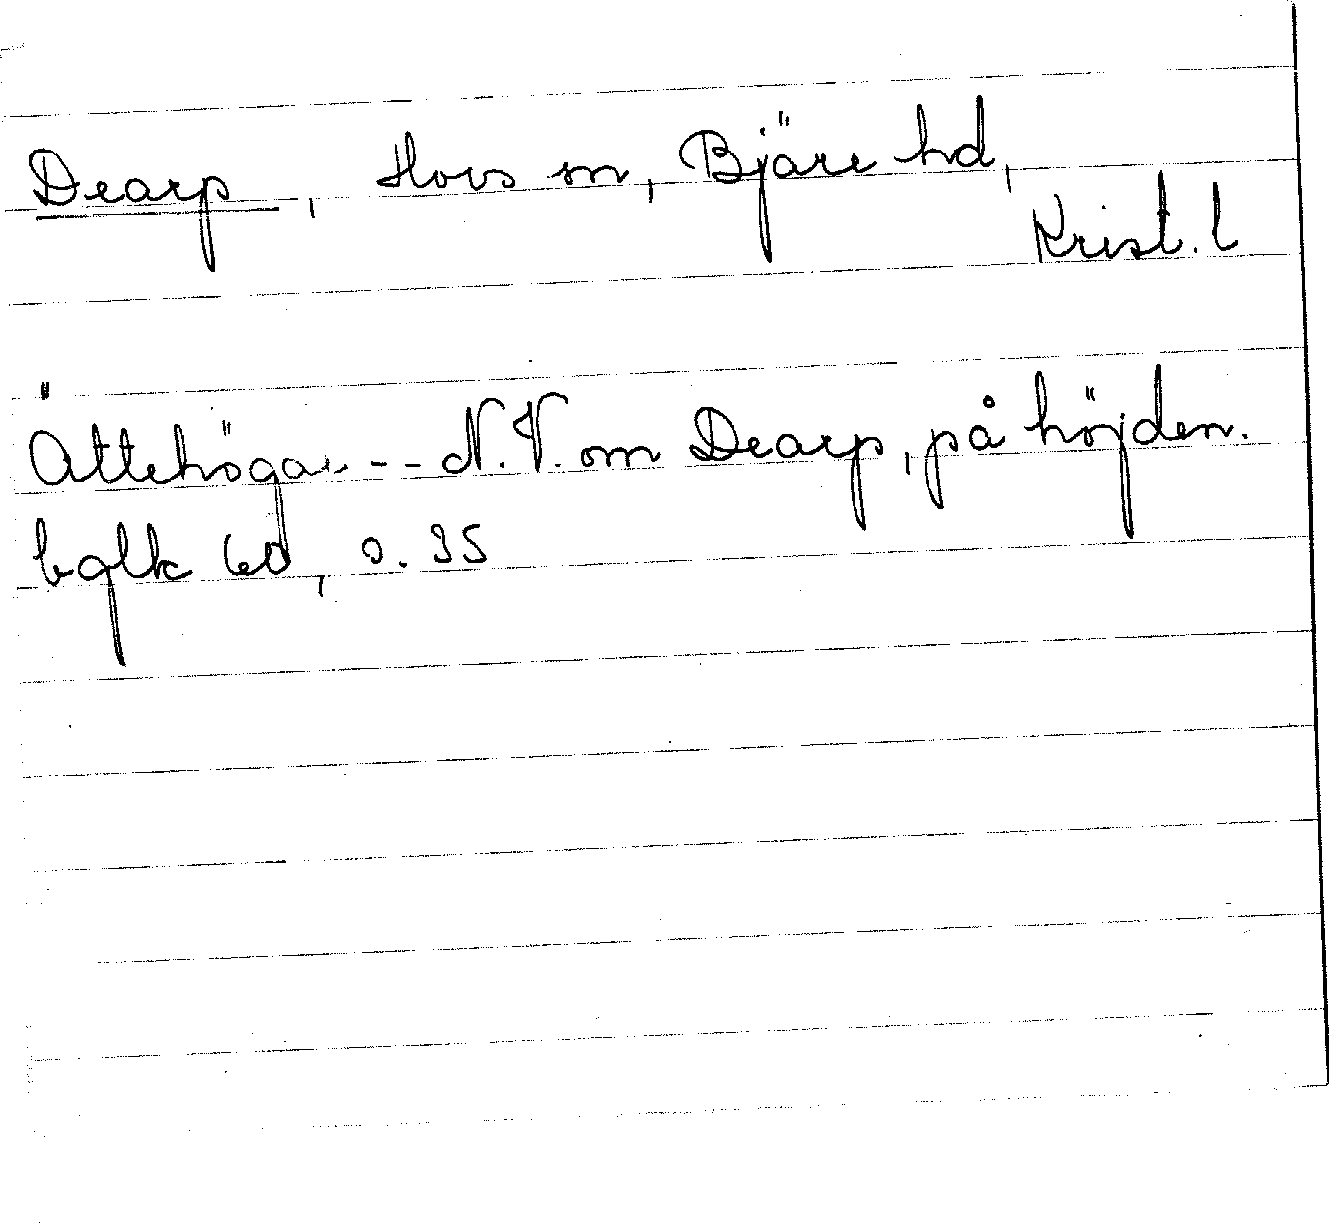 Dearp, Hovs sn, Bjäre hd,
Krist. l
Ättehögar -- N.V. om Dearp, på höjden.
bglk 60, s. 35